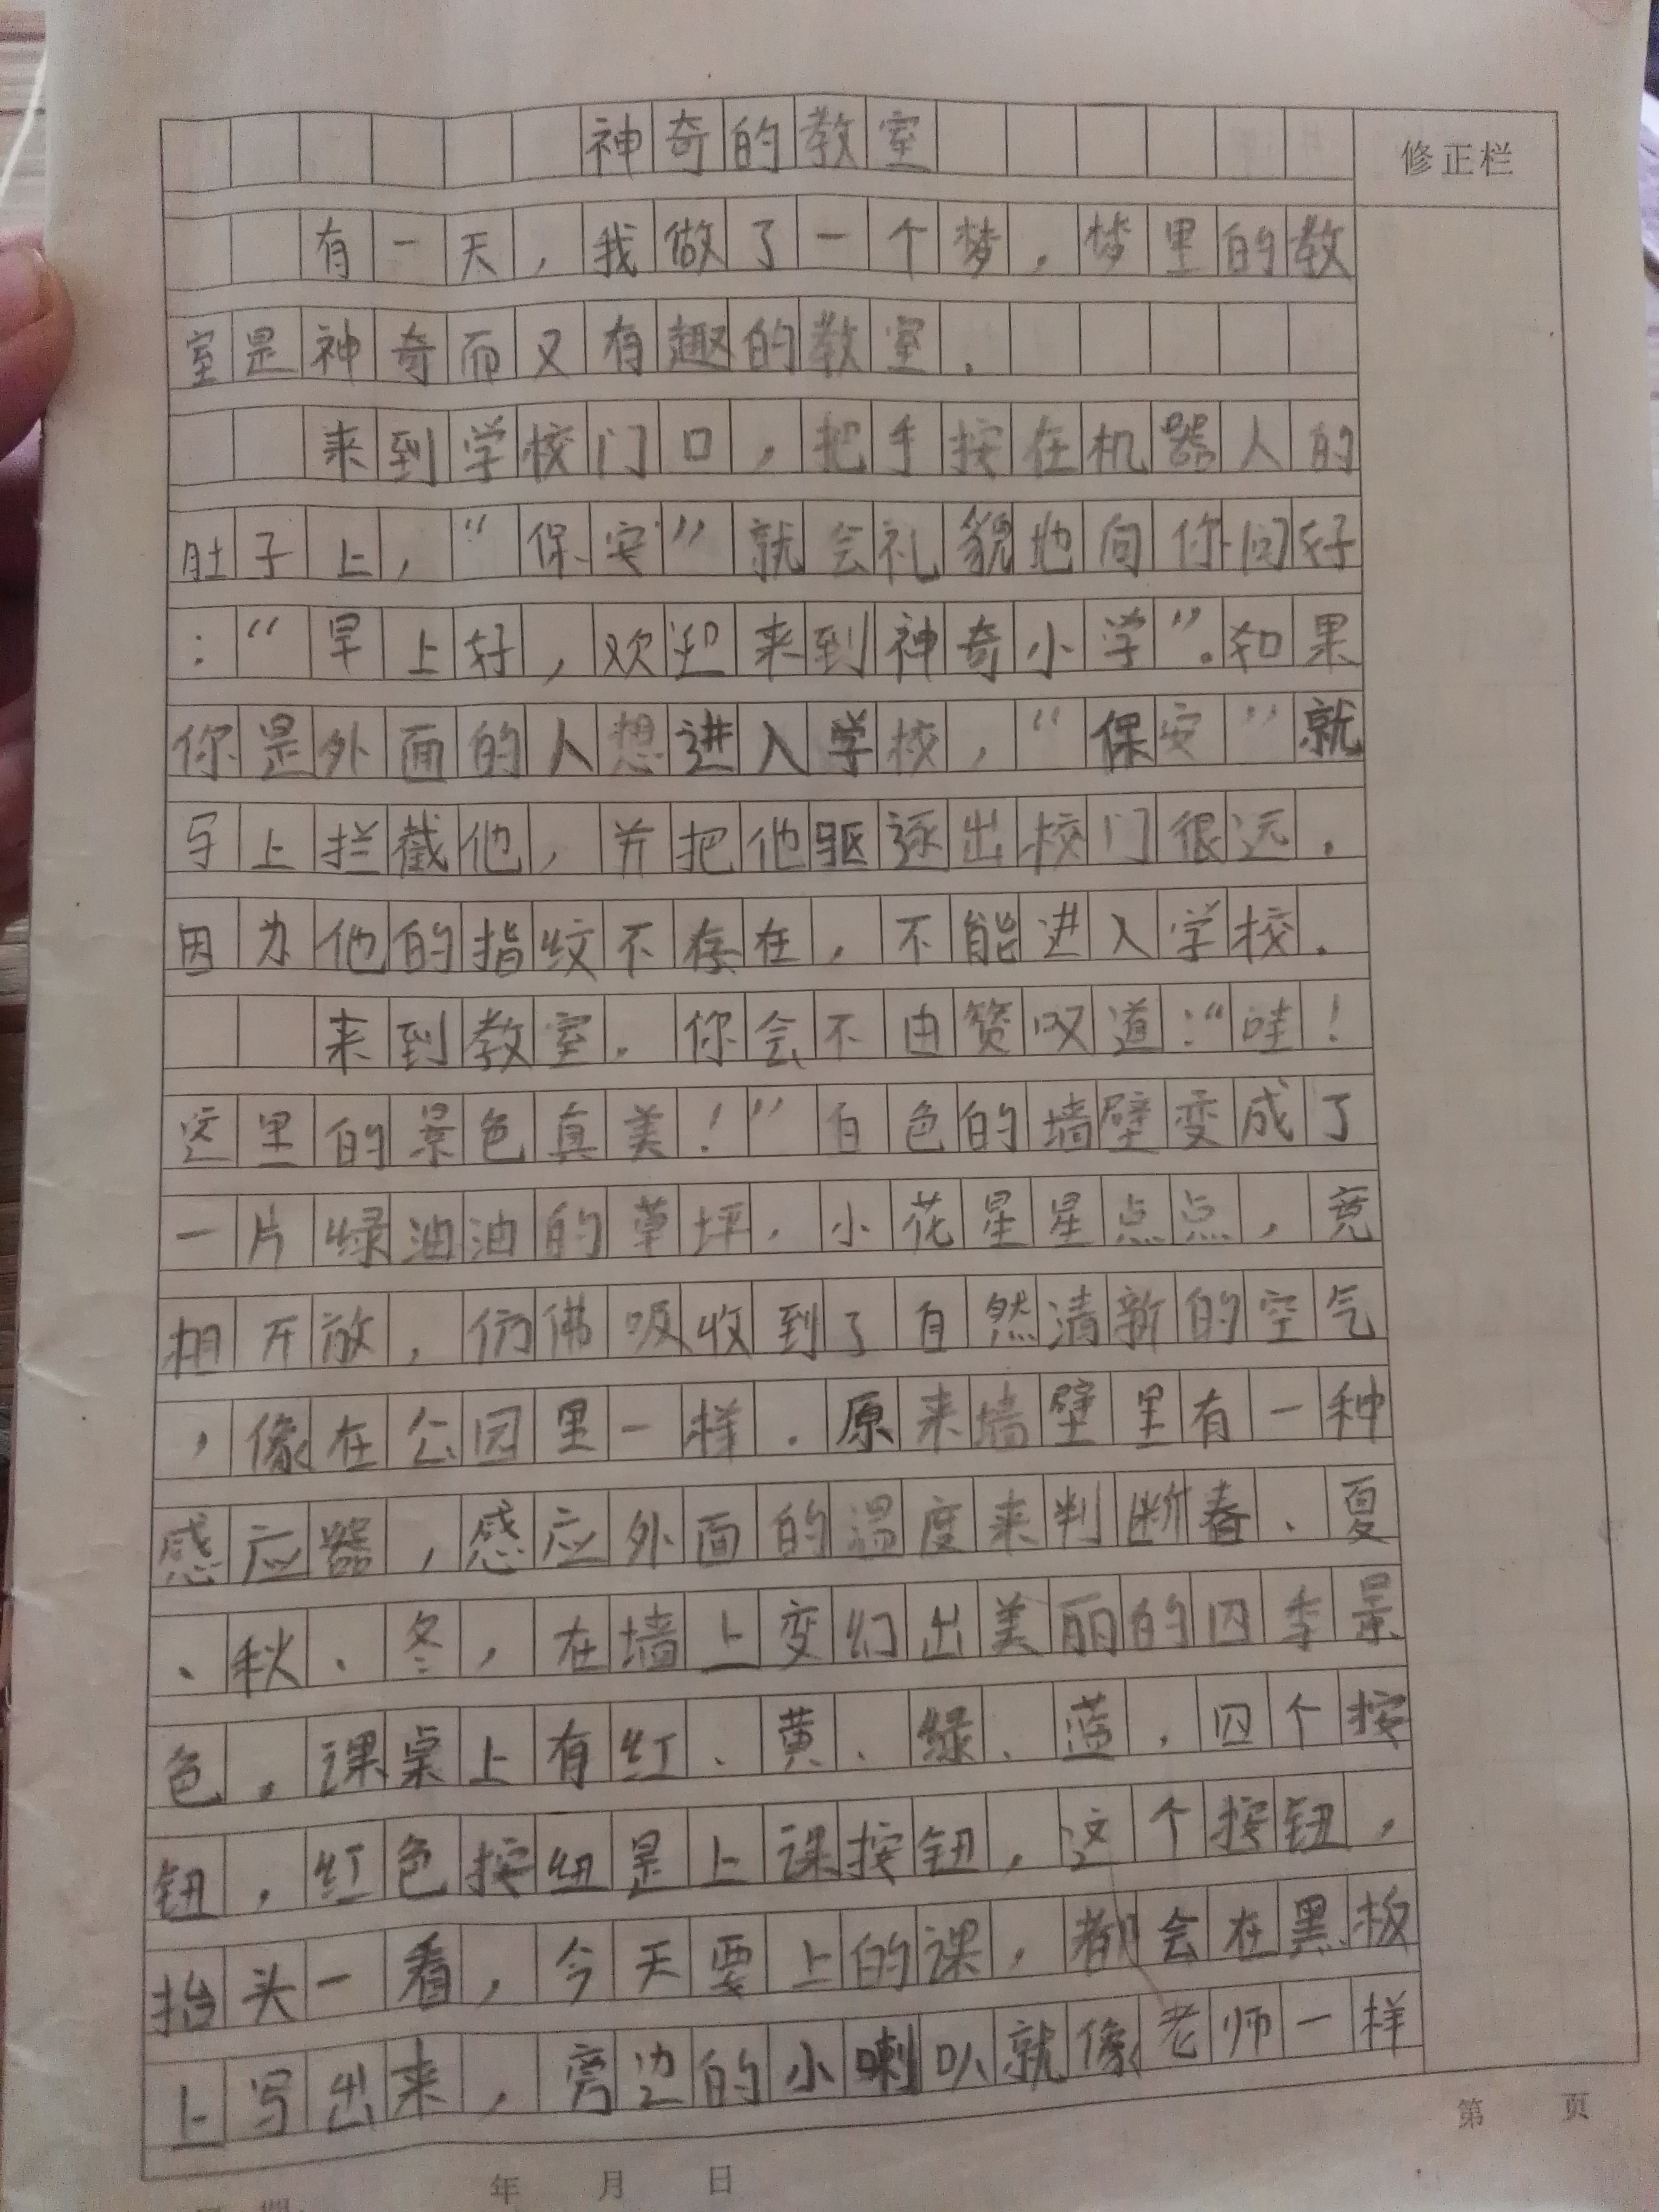 神奇的教室
修正栏
有一天，我做了一个梦，梦里的教
室是神奇而又有趣的教室．
来到学校门口，把手按在机器人的
肚子上，“保安”就会礼貌地向你问好
：“早上好，欢迎来到神奇小学”。如果
你是外面的人想进入学校，“保安”就
马上拦截他，并把他驱逐出校门很远．
因为他的指纹不存在，不能进入学校．
来到教室．你会不由赞叹道：“哇！
这里的景色真美！”白色的墙壁变成了
一片绿油油的草坪．小花星星点点，竞
相开放，仿佛吸收到了自然清新的空气
，像在公园里一样．原来墙壁里有一种
感应器，感应外面的温度来判断春、夏
、秋、冬，在墙上变幻出美丽的四季景
色。课桌上有红、黄、绿、蓝，四个按
钮，红色按纽是上课按钮，这个按钮，
抬头一看，今天要上的课，都会在黑板
上写出来，旁边的小喇叭就像老师一样
第 页
年 月 日